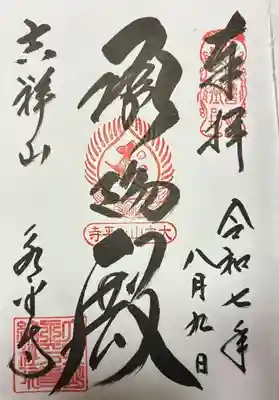 奉拝
令和七年
八月九日
承陽殿
大本山永平寺
吉祥山
永平寺